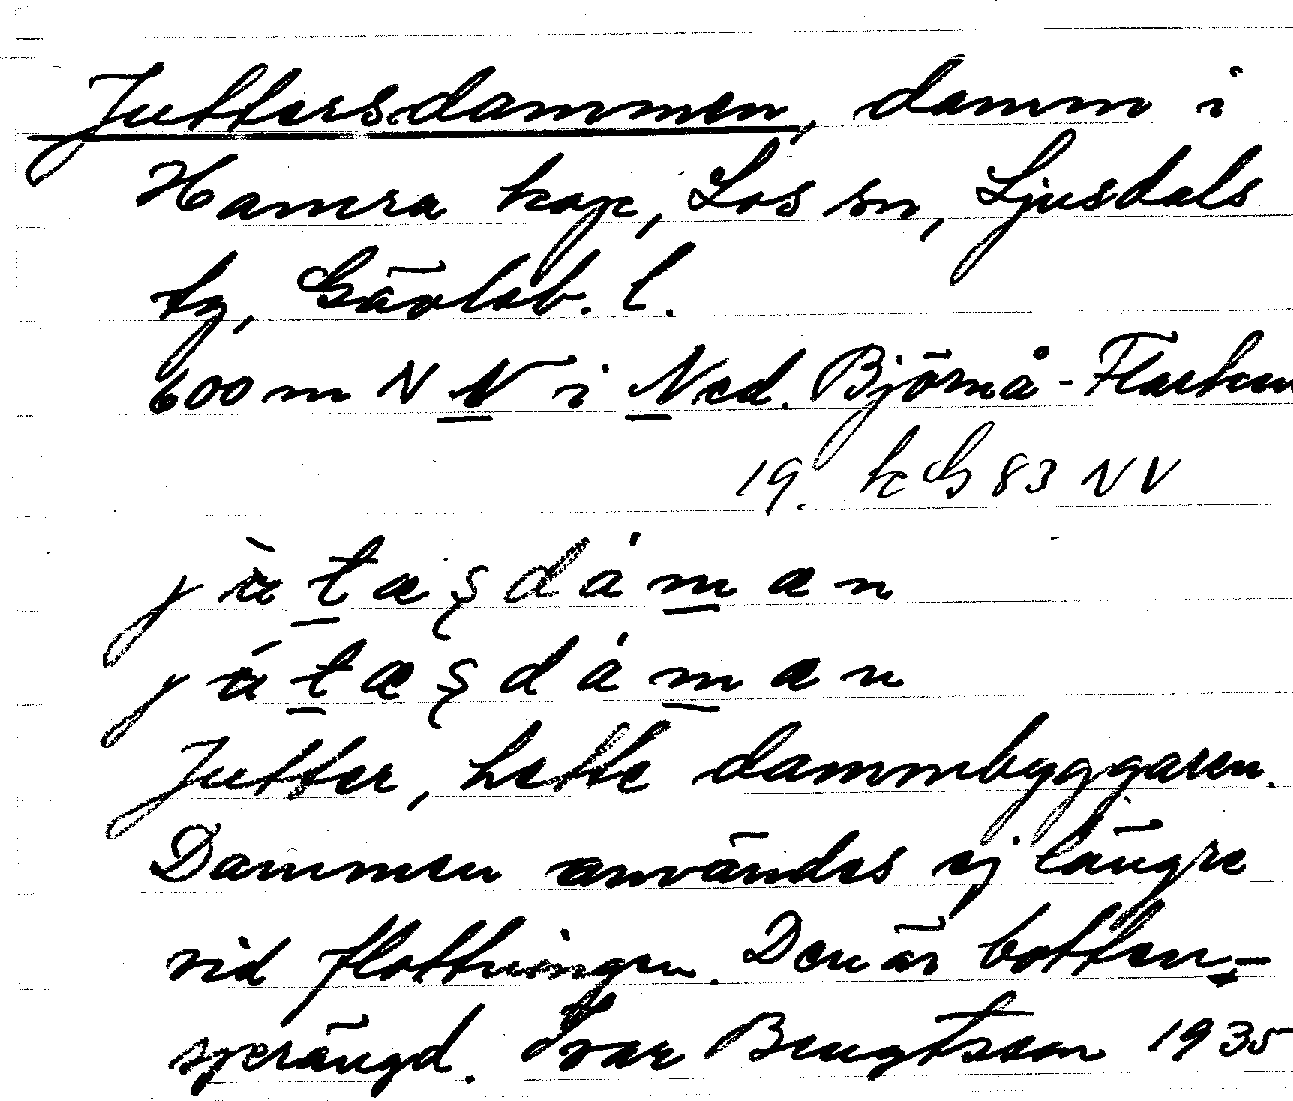 Juttersdammen, damm i
Hamra kap, Los sn, Ljusdals
tg, Gävleb. l.
600 m N N i Ned. Björnå-
19. kG 83 NV
Jutter, hette dammbyggaren.
Dammen användes ej längre
vid flottningen. Den är botten-
sprängd. Ivar Bengtsson 1935